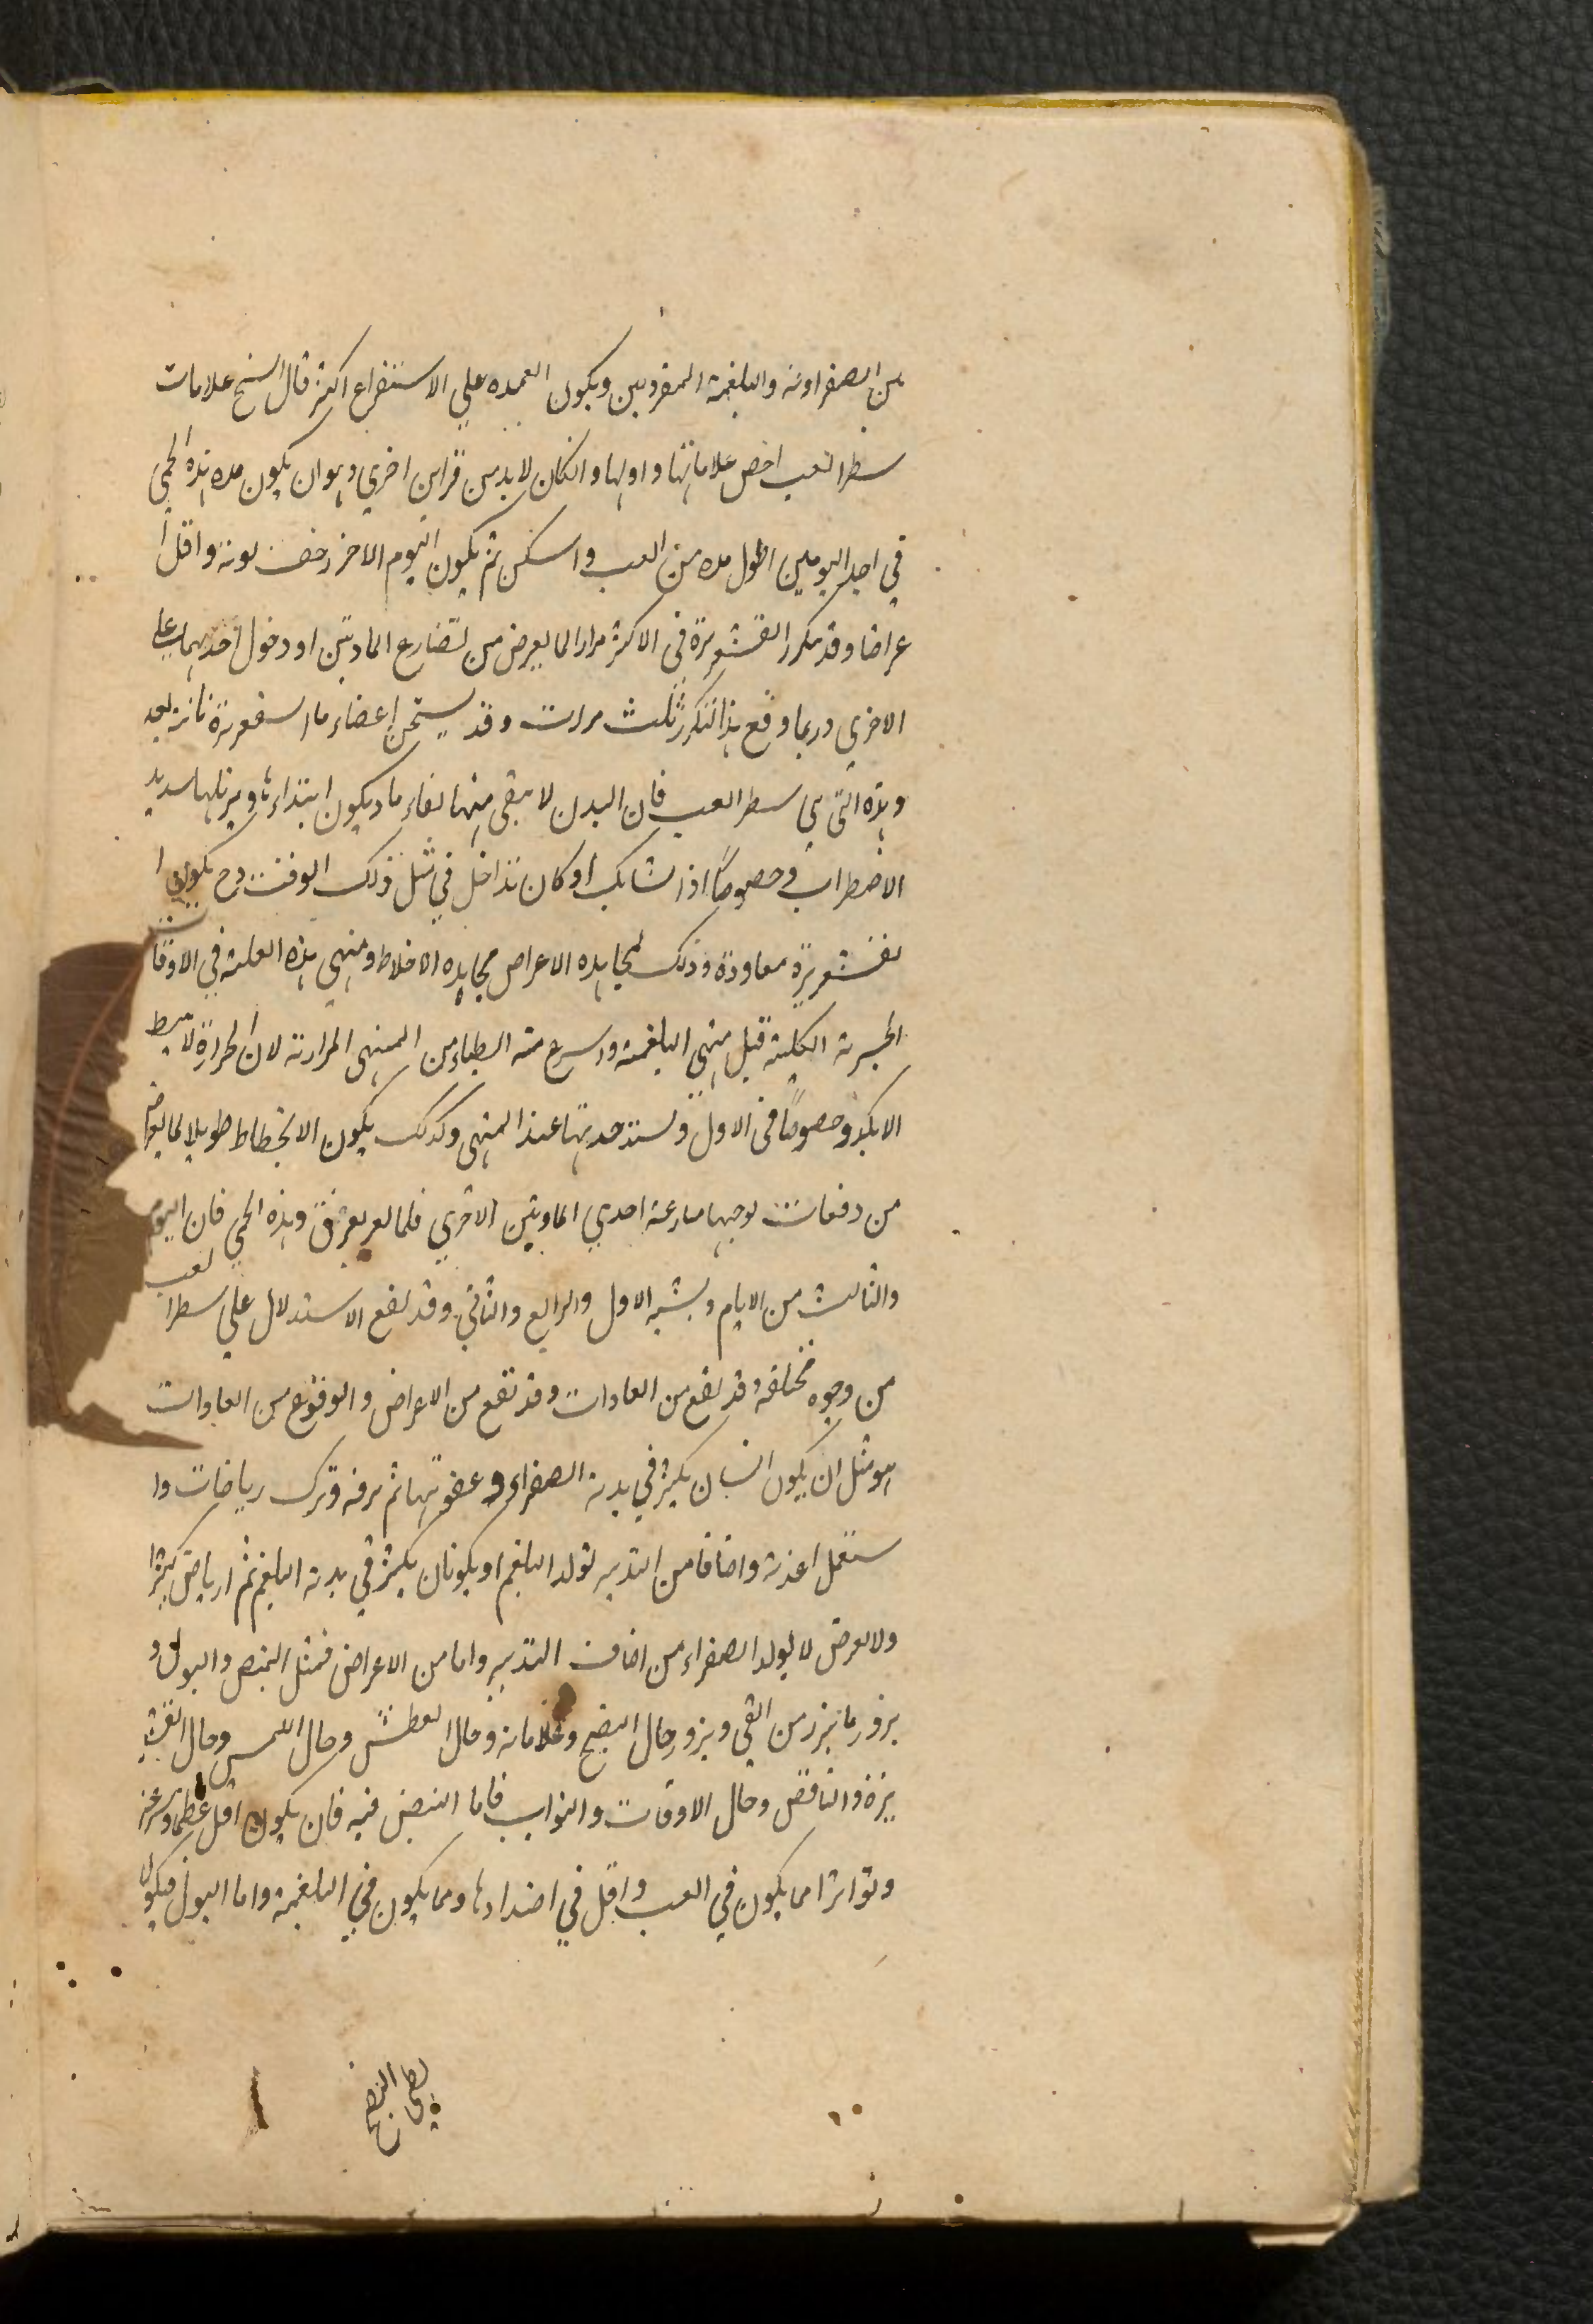 من الصفراویة والبلغمیة المفردین ویکون العمده علی الاستفراغ اکثر قال الشیخ علامات
شطر الغب اخص علاماتها واولها وانکان لابد من قراین اخری وهو ان یکون مده هذه الحمی
فی احد الیومین اطول مده من الغب واسکن ثم یکون الیوم الاخر اخف نوبة واقل ا
عراضا وقد یکرر القشعریرة فی الاکثر مرارا لما یعرض من تضارع المادتین او دخول احدیهما علی
الاخری وربما وقع هذا التکرر ثلث مرات وقد یسخن اعضاء ما القشعریرة ثانیة بعد
وهذه التی هی شطر الغب فان البدن لا یبقی منها نقاء ما ویکون ابتداءها وتزیدها شدید
الاضطراب وخصوصًا اذا تشابک او کان تداخل فی مثل ذلک الوقت وح یکون ا
لقشعریرة معاودة وذلک لمجاهده الاعراض مجاهده الاخلاط ومنتهی هذه العلة فی الاوقات
الجزیة الکلیة قبل منتهی البلغمیة واسرع منه ابطاء من المنتهی المراریة لان الحرارة لا تنبسط
الا بکد وخصوصًا فی الاول وتشتد حدتها عند المنتهی وکذلک یکون الانحطاط طویلا لما یعرض
من دفعات یوجبها مصارعة احدی المادتین الاخری فلما یعرض عرق وهذه الحمی فان الیوم
والثالث من الایام ویشبه الاول والرابع والثانی وقد یقع الاستدلال علی شطر الغب
من وجوه مختلفه وقد یقع من العادات وقد تقع من الاعراض والوقوع من العادات
هو مثل ان یکون انسان یکثر فی بدنه الصفراء و عفونتها ثم ترفه وترک ریاضات وا
ستعمل اغذیة واصنافا من التدبیر تولد البلغم او یکون ان یکثر فی بدنه البلغم ثم ارتاض کثیرا
ولا یعرض لا یولد الصفراء من اصناف التدبیر واما من الاعراض فمثل النبض والبول و
بروز ما یبرز من القی وبروز حال النضج وعلاماته وحال العطش وحال اللمس وحال القشعر
یرة والنافض وحال الاوقات والنوایب فاما النبض فیه فان یکون اقل عظما وسرعة
وتواترا مما یکون فی الغب واقل فی اضدادها ومما یکون فی البلغمیة واما البول فیکون
بطی النضج